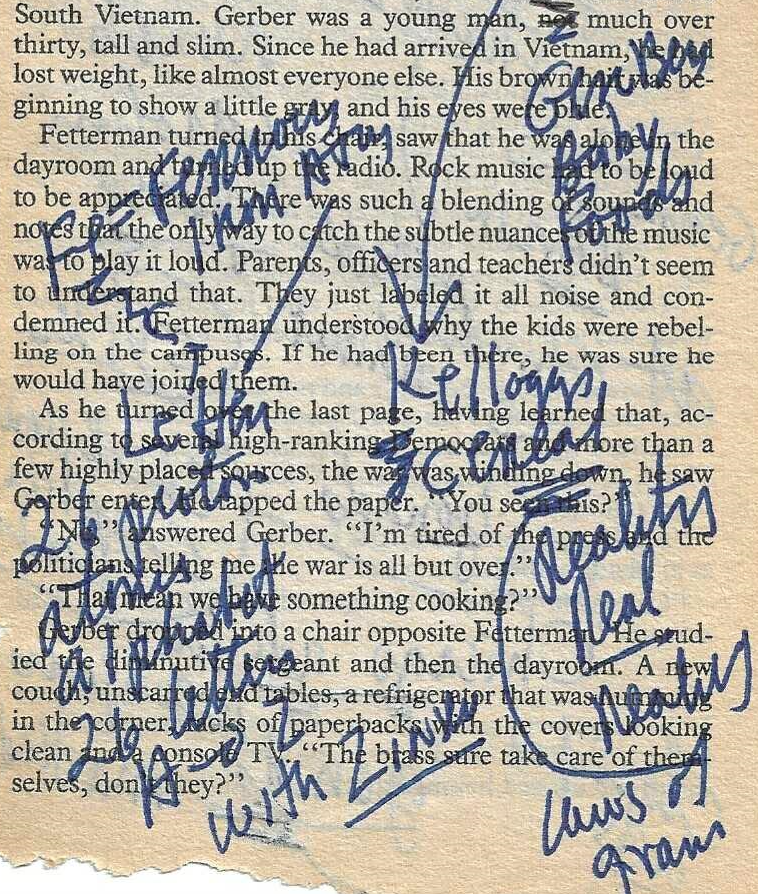 South Vietnam. Gerber was a young man, not much over
thirty, tall and slim. Since he had arrived in Vietnam, he had
lost weight, like almost everyone else. His brown hair was be-
ginning to show a little gray and his eyes were blue.
Fetterman turned in his chair, saw that he was alone in the
dayroom and turned up the radio. Rock music had to be loud
to be appreciated. There was such a blending of sounds and
notes that the only way to catch the subtle nuances of the music
was to play it loud. Parents, officers and teachers didn't seem
to understand that. They just labeled it all noise and con-
demned it. Fetterman understood why the kids were rebel-
ling on the campuses. If he had been there, he was sure he
would have joined them.
As he turned over the last page, having learned that, ac-
cording to several high-ranking Democrats and more than a
few highly placed sources, the war was winding down, he saw
Gerber enter. He tapped the paper. "You seen this?"
"No," answered Gerber. "I'm tired of the press and the
politicians telling me the war is all but over."
"That mean we have something cooking?"
Gerber dropped into a chair opposite Fetterman. He stud-
ied the diminutive sergeant and then the dayroom. A new
couch, unscarred end tables, a refrigerator that was humming
in the corner, racks of paperbacks with the covers looking
clean and a console TV. "The brass sure take care of them-
selves, don't they?"
Baby
Foods
Kelloggs
Letter
26
Real
26 letters
A-Z
with
laws of